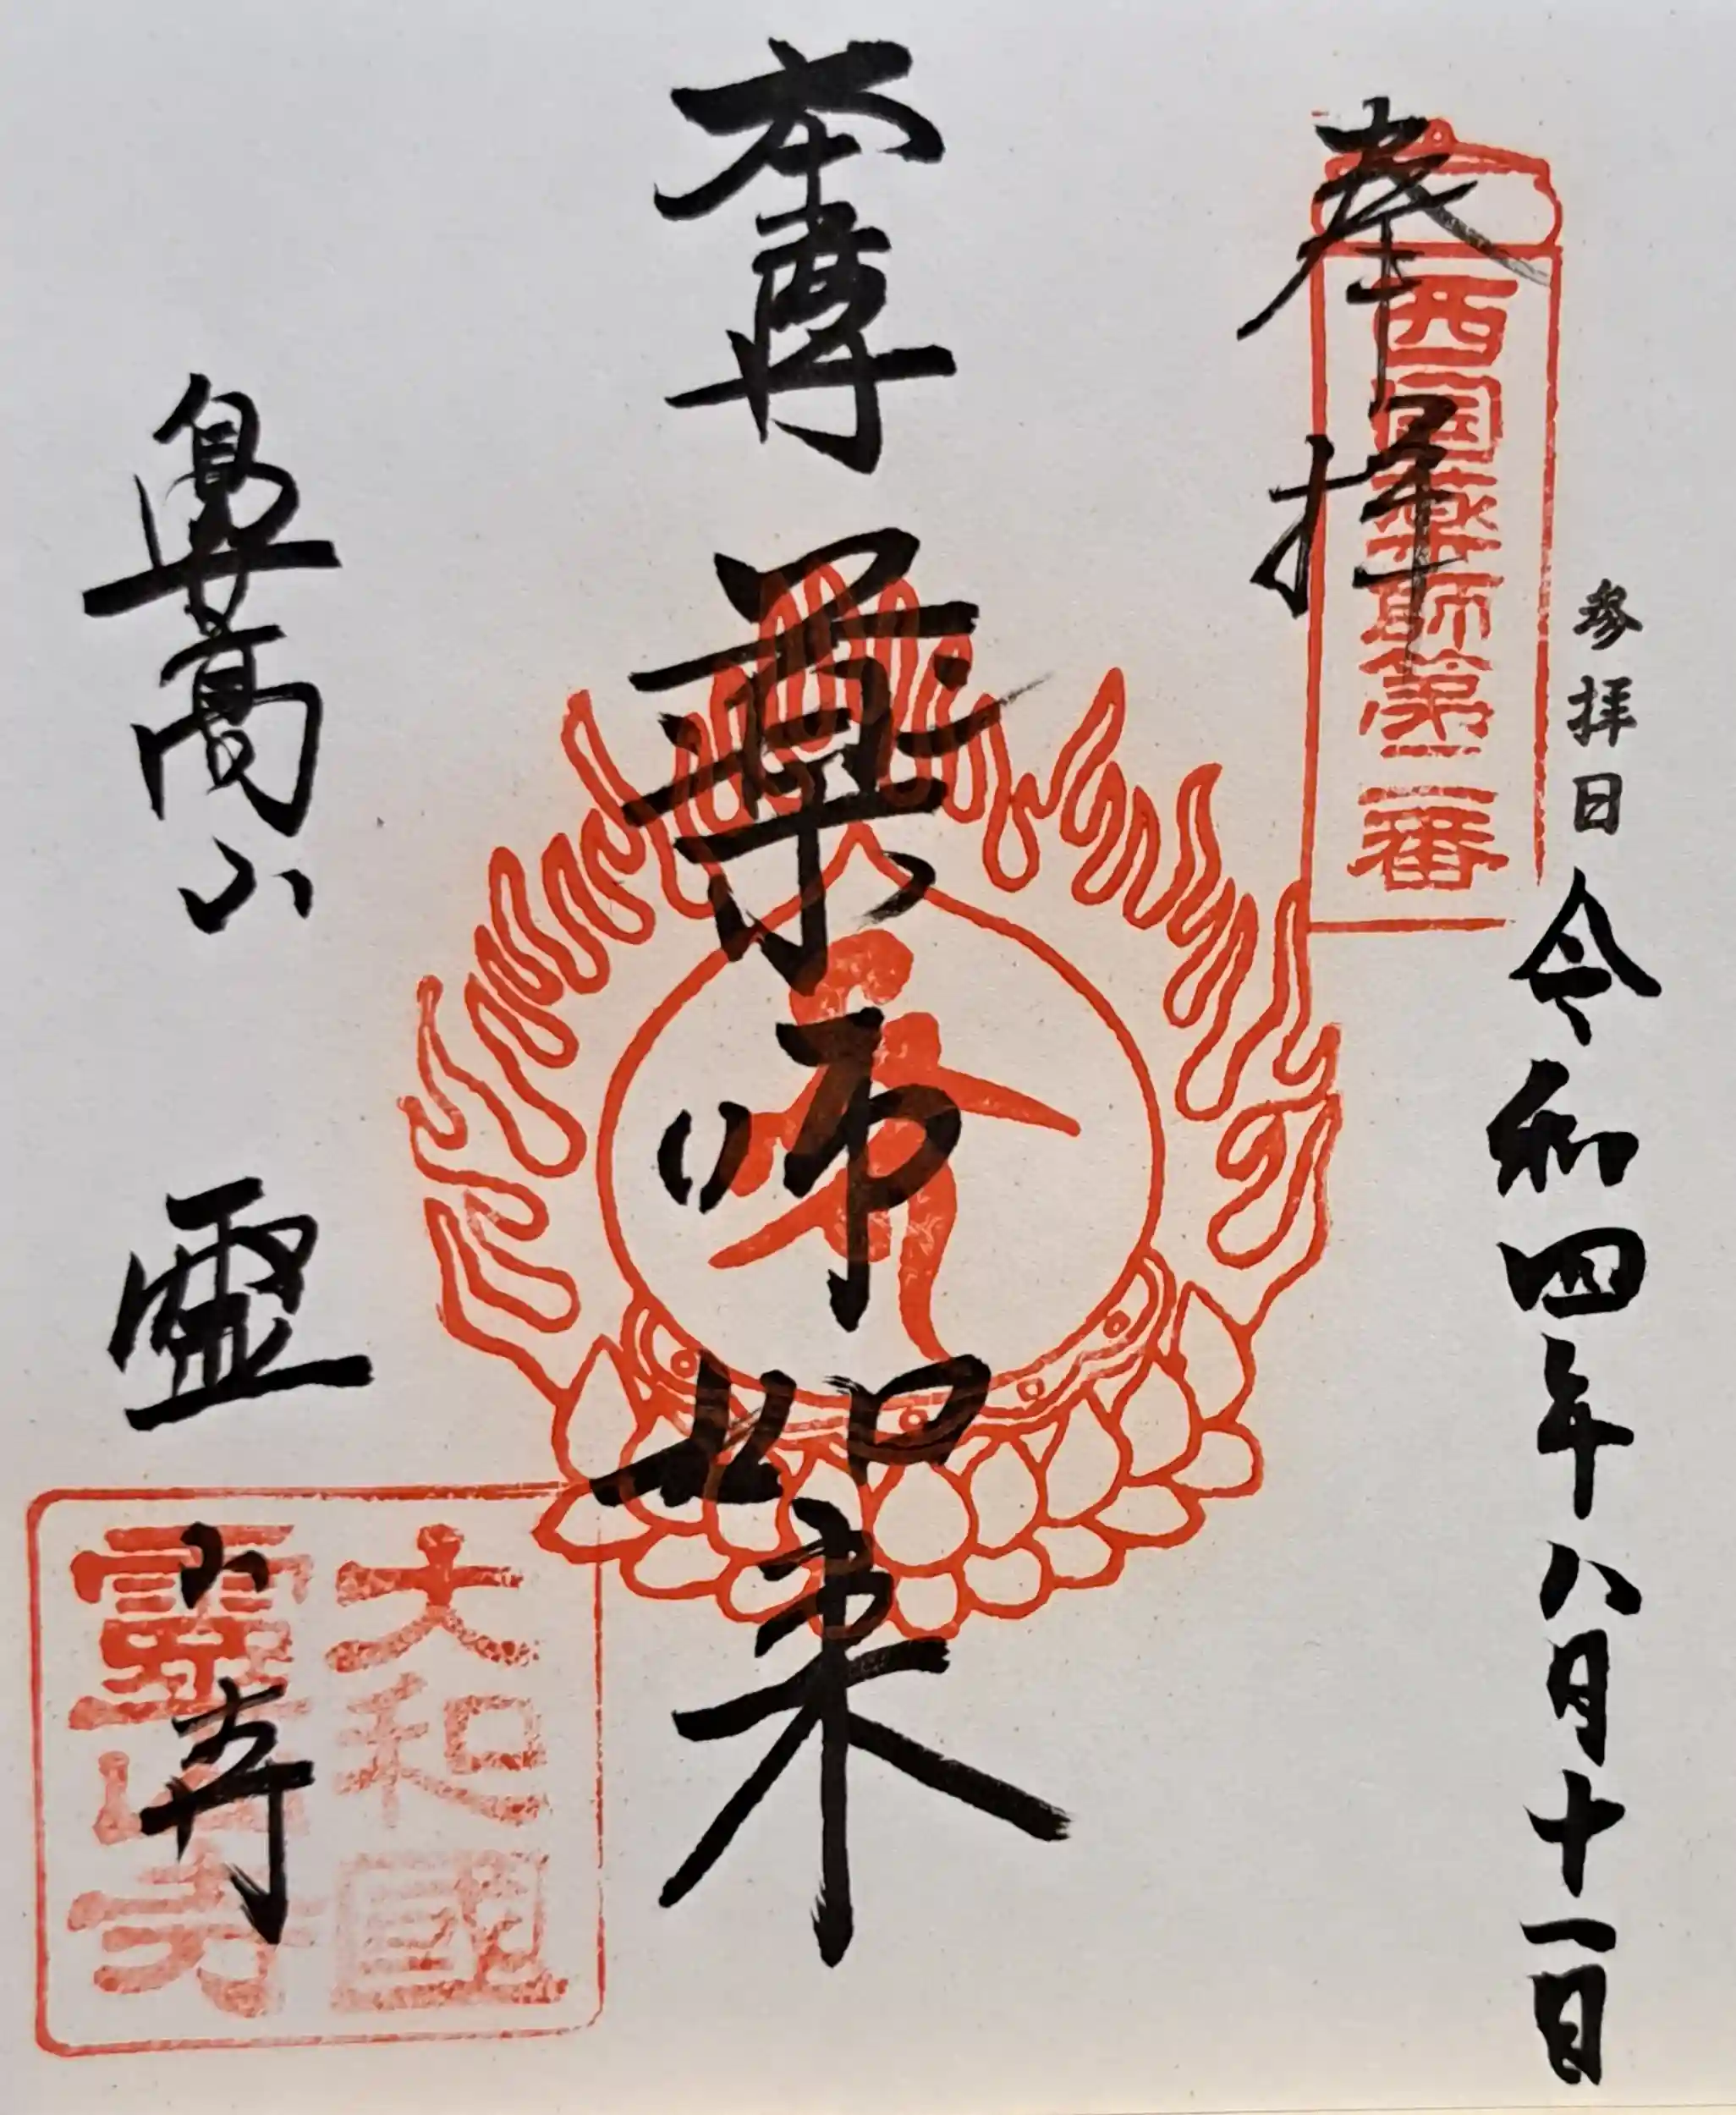 参拝日 令和四年八月十一日
奉拝
西国薬師第二番
本尊 薬師如来
鼻高山 霊山寺
大和國
霊山寺